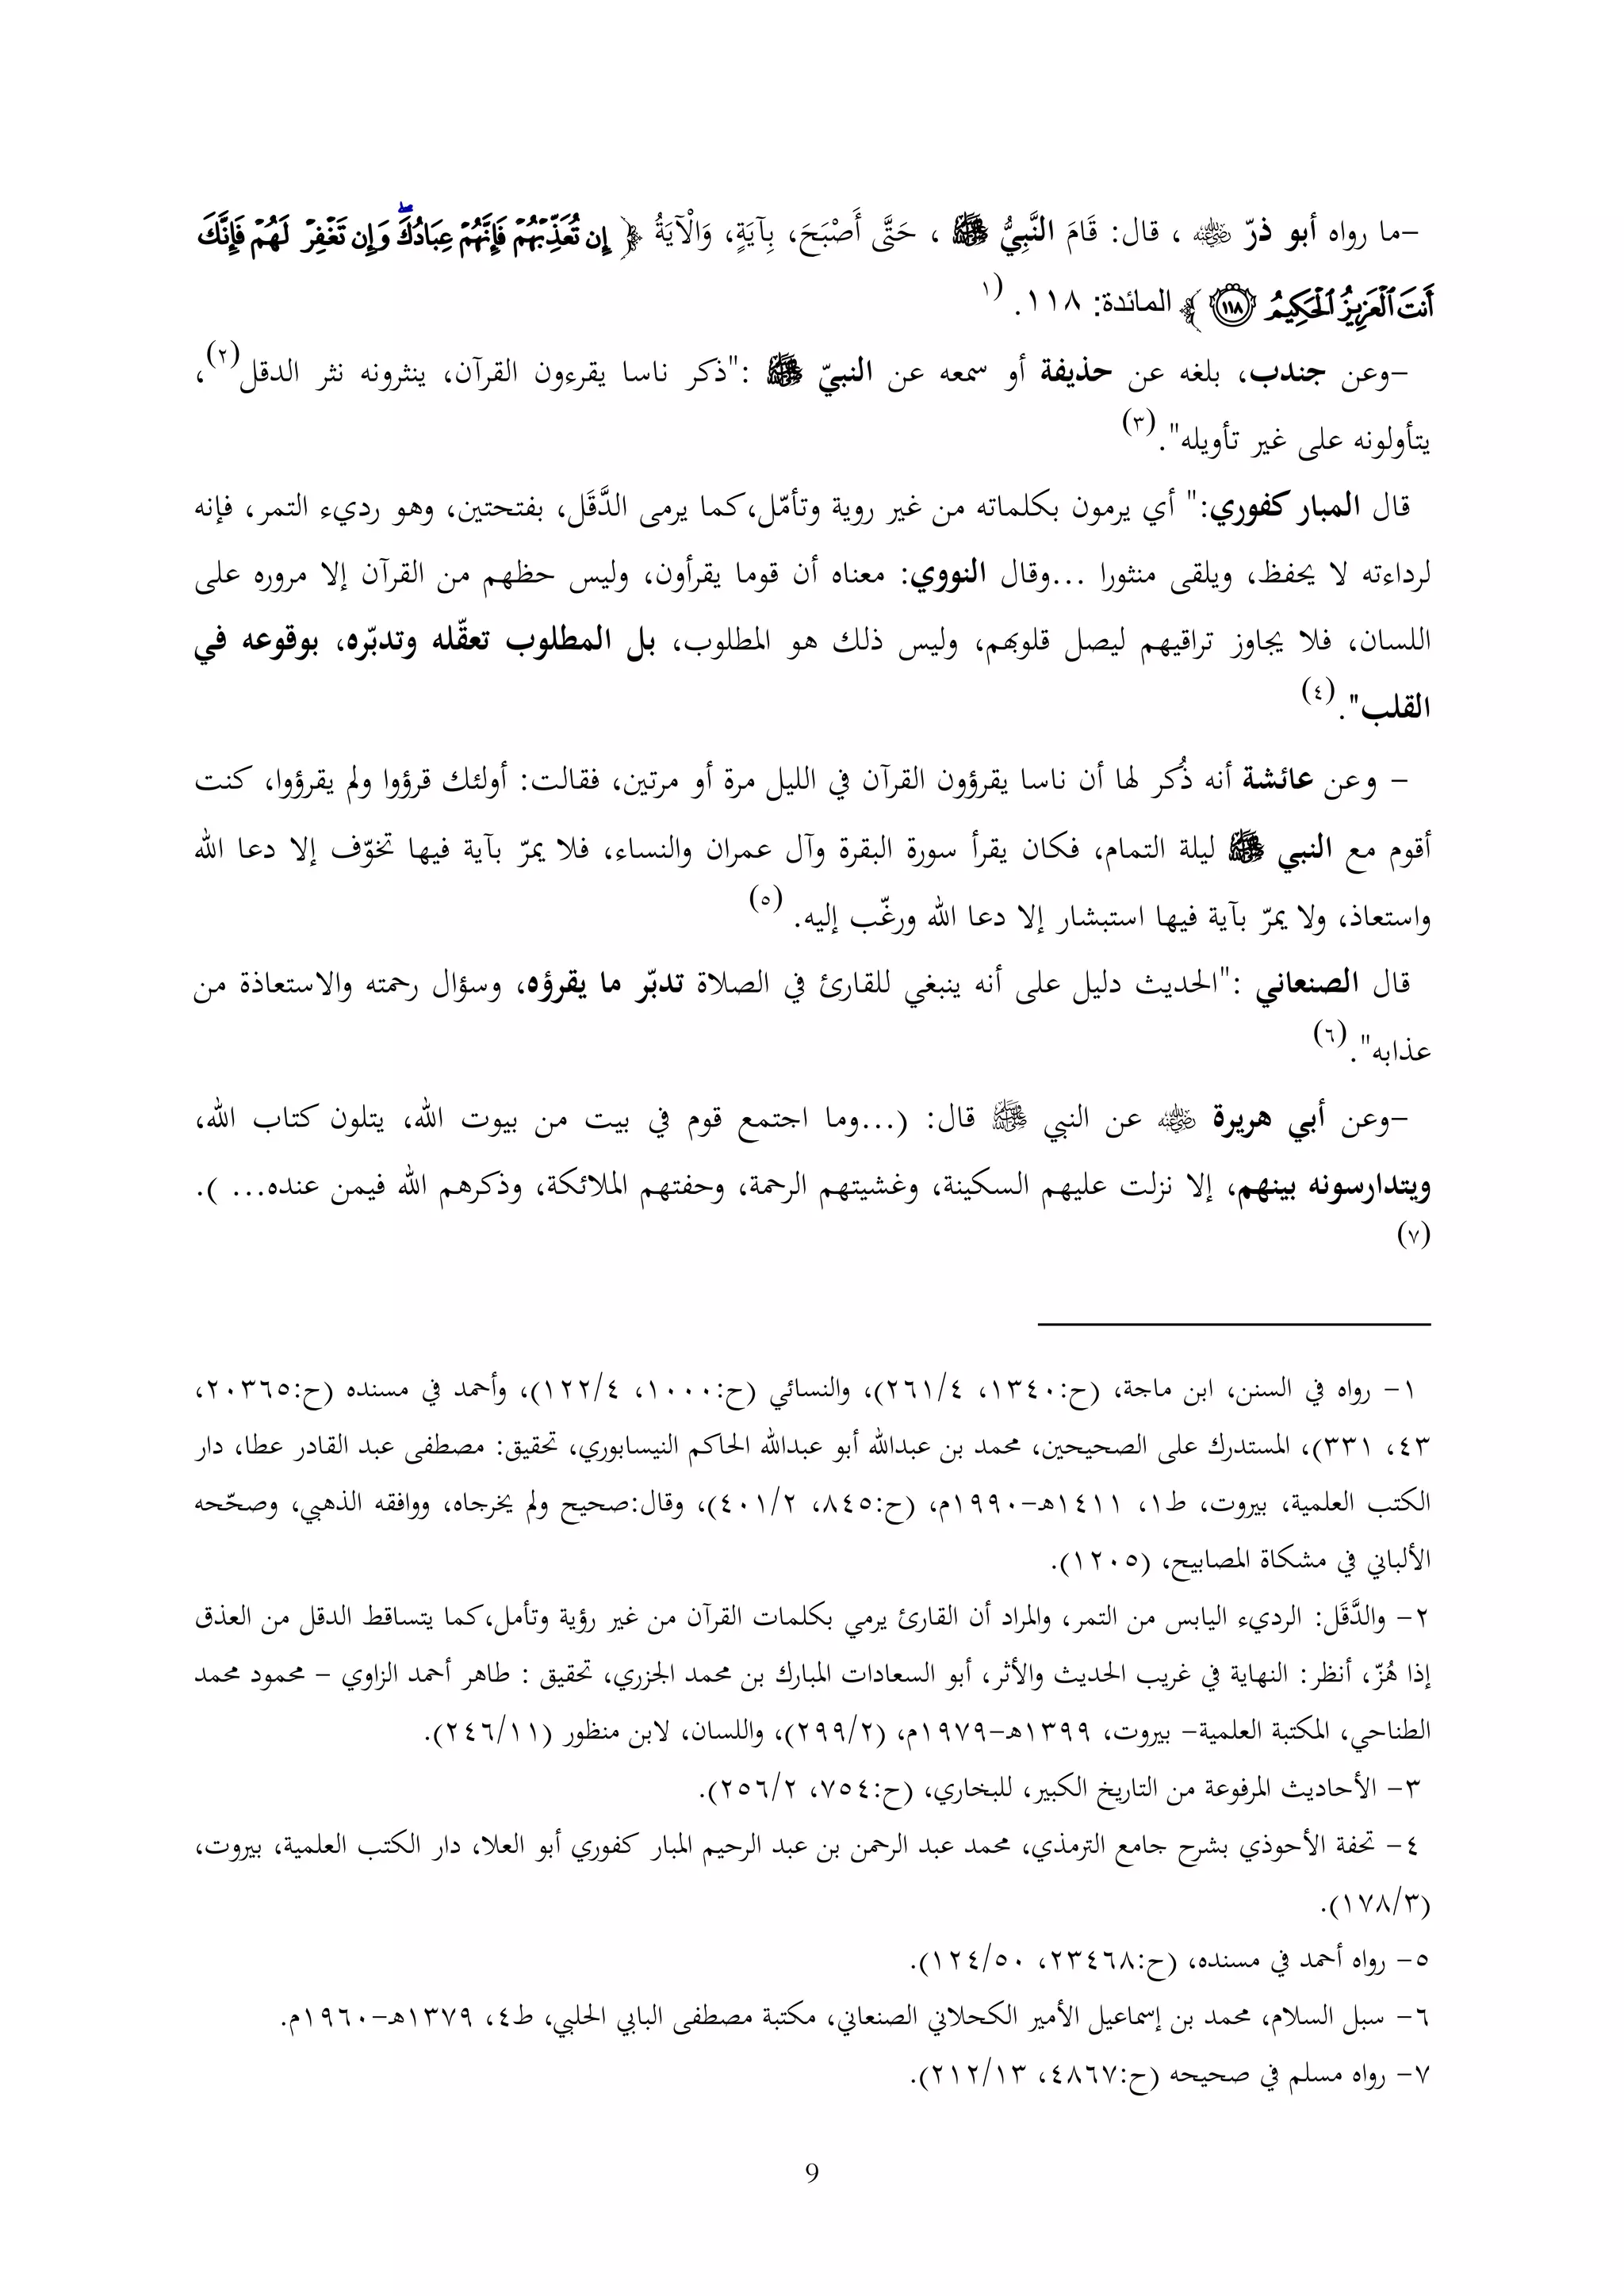 -ما رواه أبو ذرّ ﵁ ، قال: قَامَ النَّبِيُّ ﷺ ، حَتَّى أَصْبَحَ، بِآيَةٍ، وَالْآيَةُ ﴿ إِن تُعَذِّبۡهُمۡ فَإِنَّهُمۡ عِبَادُكَۖ وَإِن تَغۡفِرۡ لَهُمۡ فَإِنَّكَ
أَنتَ ٱلۡعَزِيزُ ٱلۡحَكِيمُ ١١٨ ﴾ المائدة: ١١٨. (١
-وعن جندب، بلغه عن حذيفة أو سمعه عن النبيّ ﷺ :"ذكر ناسا يقرءون القرآن، ينثرونه نثر الدقل(٢)،
يتأولونه على غير تأويله".(٣)
قال المبار كفوري:" أي يرمون بكلماته من غير روية وتأمّل،كما يرمى الدَّقَل، بفتحتين، وهو رديء التمر، فإنه
لرداءته لا يحفظ، ويلقى منثورا ...وقال النووي: معناه أن قوما يقرأون، وليس حظهم من القرآن إلا مروره على
اللسان، فلا يجاوز تراقيهم ليصل قلوبهم، وليس ذلك هو المطلوب، بل المطلوب تعقّله وتدبّره، بوقوعه في
القلب".(٤)
- وعن عائشة أنه ذُكر لها أن ناسا يقرؤون القرآن في الليل مرة أو مرتين، فقالت: أولئك قرؤوا ولم يقرؤوا، كنت
أقوم مع النبي ﷺ ليلة التمام، فكان يقرأ سورة البقرة وآل عمران والنساء، فلا يمرّ بآية فيها تخوّف إلا دعا الله
واستعاذ، ولا يمرّ بآية فيها استبشار إلا دعا الله ورغّب إليه. (٥)
قال الصنعاني :"الحديث دليل على أنه ينبغي للقارئ في الصلاة تدبّر ما يقرؤه، وسؤال رحمته والاستعاذة من
عذابه".(٦)
-وعن أبي هريرة ﵁ عن النبي ﷺ قال: (...وما اجتمع قوم في بيت من بيوت الله، يتلون كتاب الله،
ويتدارسونه بينهم، إلا نزلت عليهم السكينة، وغشيتهم الرحمة، وحفتهم الملائكة، وذكرهم الله فيمن عنده... ).
(٧)
١- رواه في السنن، ابن ماجة، (ح:١٣٤٠، ٢٦١/٤)، والنسائي (ح:١٠٠٠، ١٢٢/٤)، وأحمد في مسنده (ح:٢٠٣٦٥،
٤٣، ٣٣١)، المستدرك على الصحيحين، محمد بن عبدالله أبو عبدالله الحاكم النيسابوري، تحقيق: مصطفى عبد القادر عطا، دار
الكتب العلمية، بيروت، ط١، ١٤١١هـ-١٩٩٠م، (ح:٨٤٥، ٤٠١/٢)، وقال:صحيح ولم يخرجاه، ووافقه الذهبي، وصحّحه
الألباني في مشكاة المصابيح، (١٢٠٥).
٢- والدَّقَل: الرديء اليابس من التمر، والمراد أن القارئ يرمي بكلمات القرآن من غير رؤية وتأمل،كما يتساقط الدقل من العذق
إذا هُزّ، أنظر: النهاية في غريب الحديث والأثر، أبو السعادات المبارك بن محمد الجزري، تحقيق : طاهر أحمد الزاوي - محمود محمد
الطناحي، المكتبة العلمية- بيروت، ١٣٩٩هـ-١٩٧٩م، (٢٩٩/٢)، واللسان، لابن منظور (٢٤٦/١١).
٣- الأحاديث المرفوعة من التاريخ الكبير، للبخاري، (ح:٧٥٤، ٢٥٦/٢).
٤- تحفة الأحوذي بشرح جامع الترمذي، محمد عبد الرحمن بن عبد الرحيم المبار كفوري أبو العلا، دار الكتب العلمية، بيروت،
(١٧٨/٣).
٥- رواه أحمد في مسنده، (ح:٢٣٤٦٨، ١٢٤/٥٠).
٦- سبل السلام، محمد بن إسماعيل الأمير الكحلاني الصنعاني، مكتبة مصطفى البابي الحلبي، ط٤، ١٣٧٩هـ-١٩٦٠م.
٧- رواه مسلم في صحيحه (ح:٤٨٦٧، ٢١٢/١٣).
9